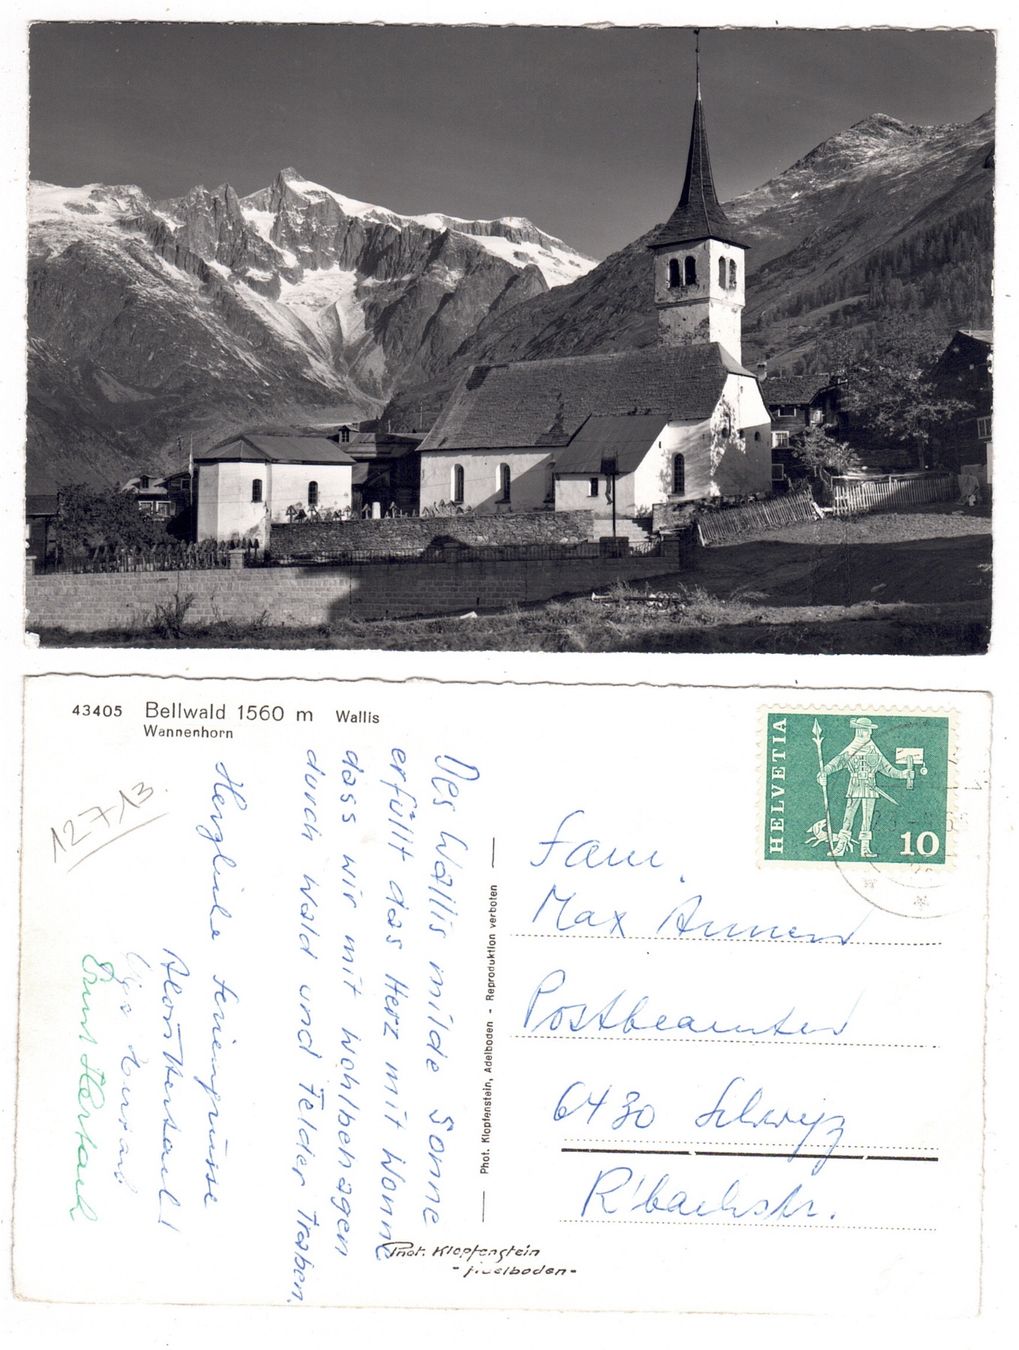 43405 Bellwald 1560 m Wallis
Wannenhorn
12713
Des Wallis milde Sonne
erfüllt das Herz mit Wonne
dass wir mit Wohlbehagen
durch Wald und Felder Traben.
Herzliche Feriengrüsse
Alois
Ernst
Phot. Klopfenstein, Adelboden - Reproduktion verboten
Phot. Klopfenstein
- Adelboden -
HELVETIA
10
Fam.
Max Annen
Postbeamter
6430 Schwyz
R'bachstr.